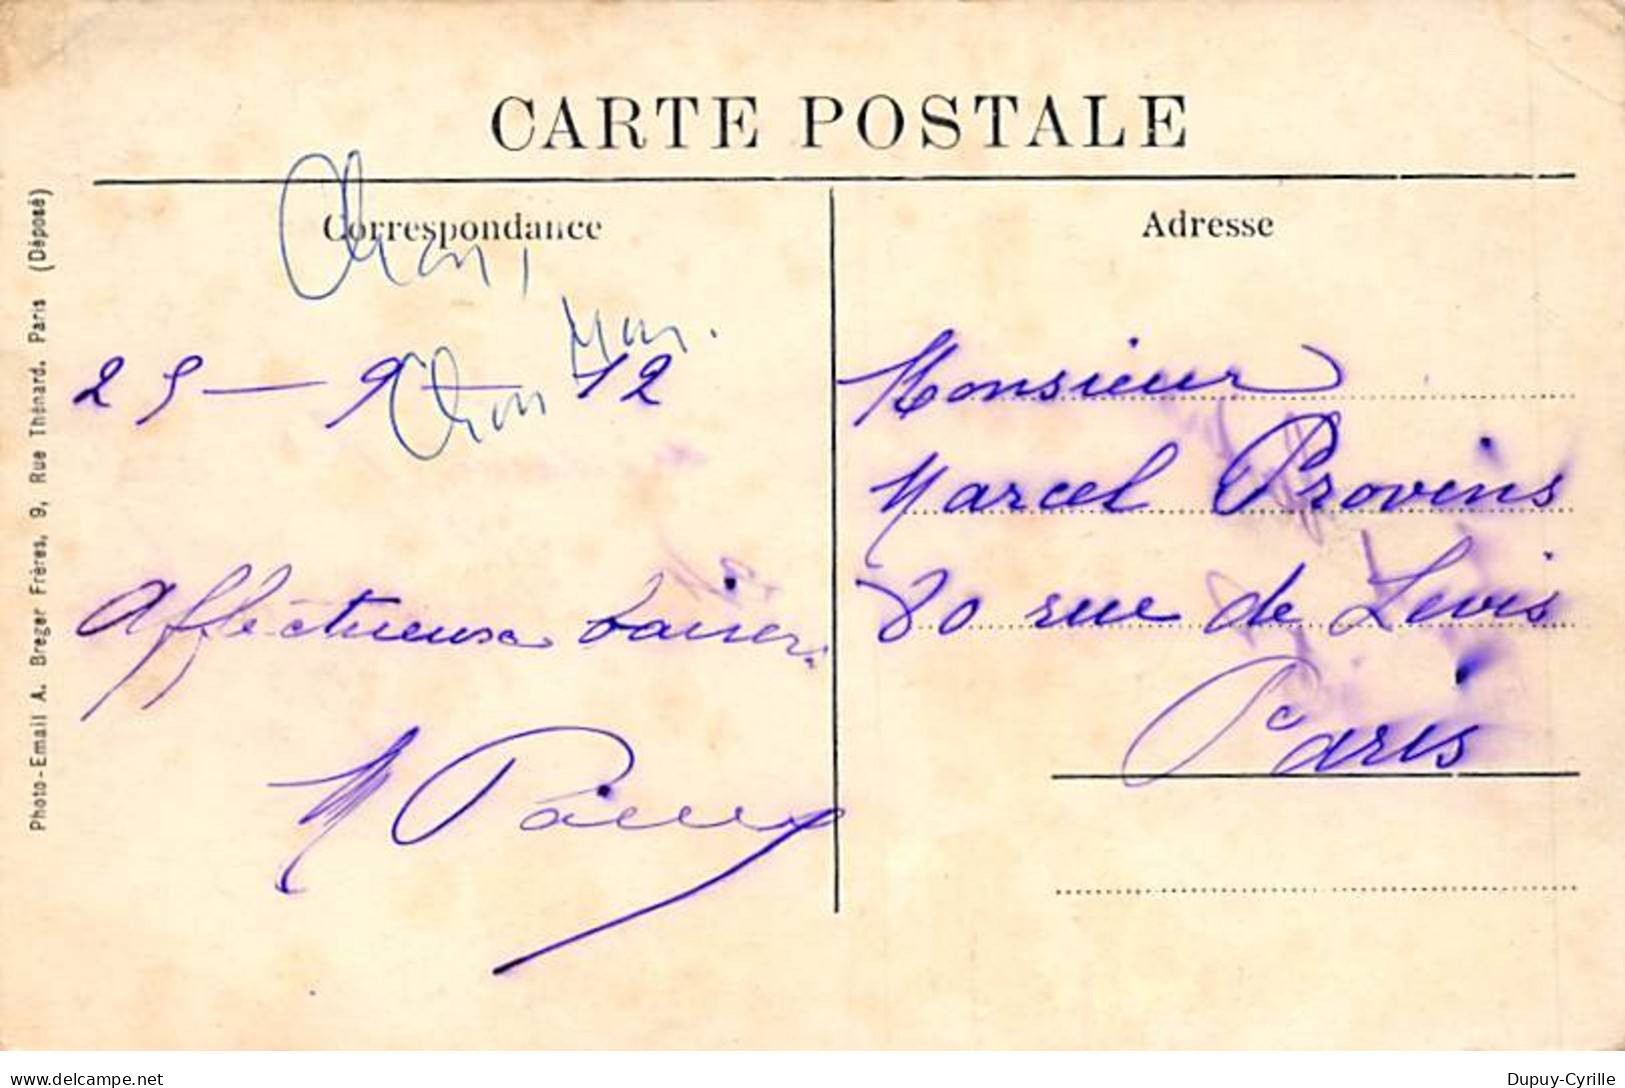 CARTE POSTALE
Correspondance
25 - 9 - 12
Affectueux baiser
M
Adresse
Monsieur
Marcel Provins
80 rue de Levis
Paris
Photo-Email A. Breger Frères, 9, Rue Thénard. Paris (Déposé)
delcampe.net
Dupuy-Cyrille